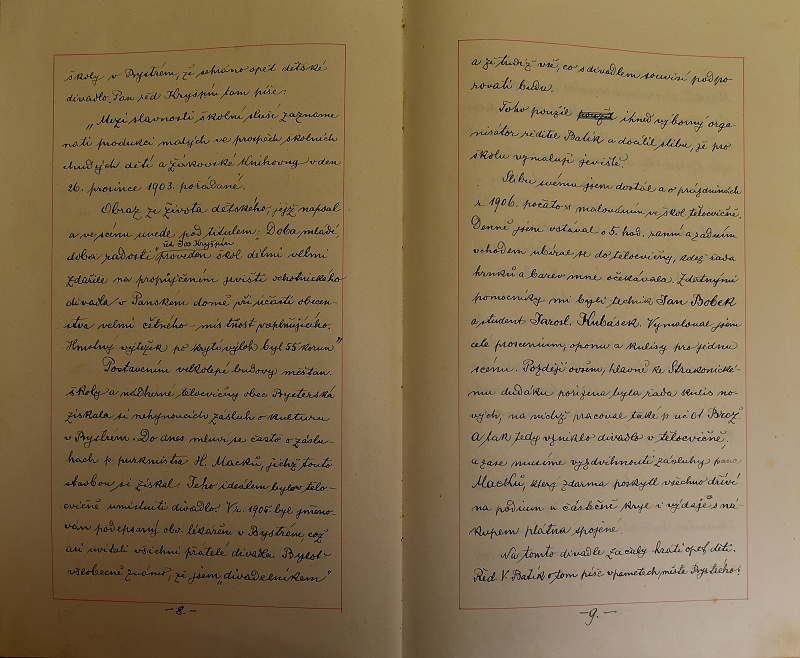 školy v Bystrém, že sehráno opět dětské
divadlo. Pan řed Kryšpín tam píše:
„Mezi slavnosti školní sluší zazname-
nati produkci malých ve prospěch školních
chudých dětí a žákovské knihovny v den
26. prosince 1903. pořádané.
Obraz ze života dětského, jejž napsal
a ve scénu uvede pod titulem: „Doba mladé,
řd. Jos Kryšpín
doba radosti" proveden škol dětmi velmi
zdařile na propůjčeném jevišti ochotnického
divadla v Panském domě, při účasti obecen-
stva velmi četného - místnost naplňujícího.
Hmotný výtěžek po krytí výloh byl 55 korun"
Postavením velkolepé budovy měšťan.
školy a nádherné tělocvičny obec Bysterská
získala si nehynoucích zásluh o kulturu
v Bystrém. Do dnes mluví se často o záslu-
hách p. purkmistra H. Macků, jichž touto
stavbou si získal. Jeho ideálem bylo v tělo-
cvičně umístniti divadlo. V r. 1905 byl jmeno-
ván podepsaný obv. lékařem v Bystrém, což
asi uvítali všichni přátelé divadla. Bylo
všeobecně známo, že jsem „divadelníkem"
-8.-
a že tudíž vše, co s divadlem souvisí podpo-
rovati budu.
Toho použil použil ihned výborný orga-
nisátor ředitel Batík a docílil slibu, že pro
školu vymaluji jeviště.
Slibu svému jsem dostál a o prázdninách
r. 1906. počato s malováním ve škol tělocvičně.
Denně jsem vstával o 5. hod. ranní a zadním
vchodem ubíral se do tělocvičny, kdež řada
hrnků a barev mne očekávala. Zdatnými
pomocníky mi byli technik Jan Bobek
a student Jarosl. Kubásek. Vymaloval jsem
celé proscenium, oponu a kulisy pro jednu
scénu. Později ovšem, hlavně ke Strakonické-
mu dudáku pořízena byla řada kulis no-
vých, na nichž pracoval také p. uč Ot Brož
A tak tedy vzniklo divadlo v tělocvičně,
a zase musíme vyzdvihnouti zásluhy pana
Macků, který zdarma poskytl všechno dříví
na podium a částečně kryl i výdaje s ná-
kupem plátna spojené.
Na tomto divadle začaly hráti opět děti.
Řed. V. Batík o tom píše v pamětech města Bystrého:
-9.-